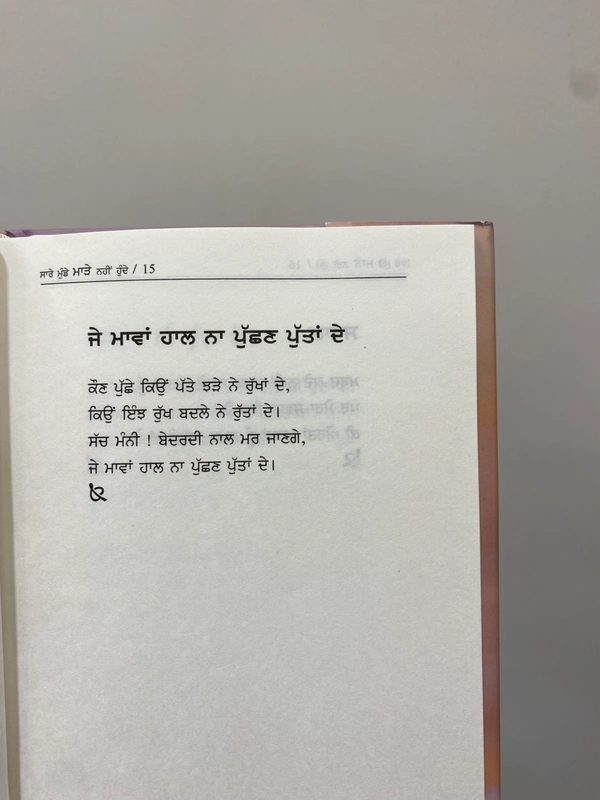 ਸਾਰੇ ਮੁੰਡੇ ਮਾੜੇ ਨਹੀਂ ਹੁੰਦੇ / 15
ਜੇ ਮਾਵਾਂ ਹਾਲ ਨਾ ਪੁੱਛਣ ਪੁੱਤਾਂ ਦੇ
ਕੌਣ ਪੁੱਛੇ ਕਿਉਂ ਪੱਤੇ ਝੜੇ ਨੇ ਰੁੱਖਾਂ ਦੇ,
ਕਿਉਂ ਇੰਝ ਰੁੱਖ ਬਦਲੇ ਨੇ ਰੁੱਤਾਂ ਦੇ।
ਸੱਚ ਮੰਨੀ ! ਬੇਦਰਦੀ ਨਾਲ ਮਰ ਜਾਣਗੇ,
ਜੇ ਮਾਵਾਂ ਹਾਲ ਨਾ ਪੁੱਛਣ ਪੁੱਤਾਂ ਦੇ।